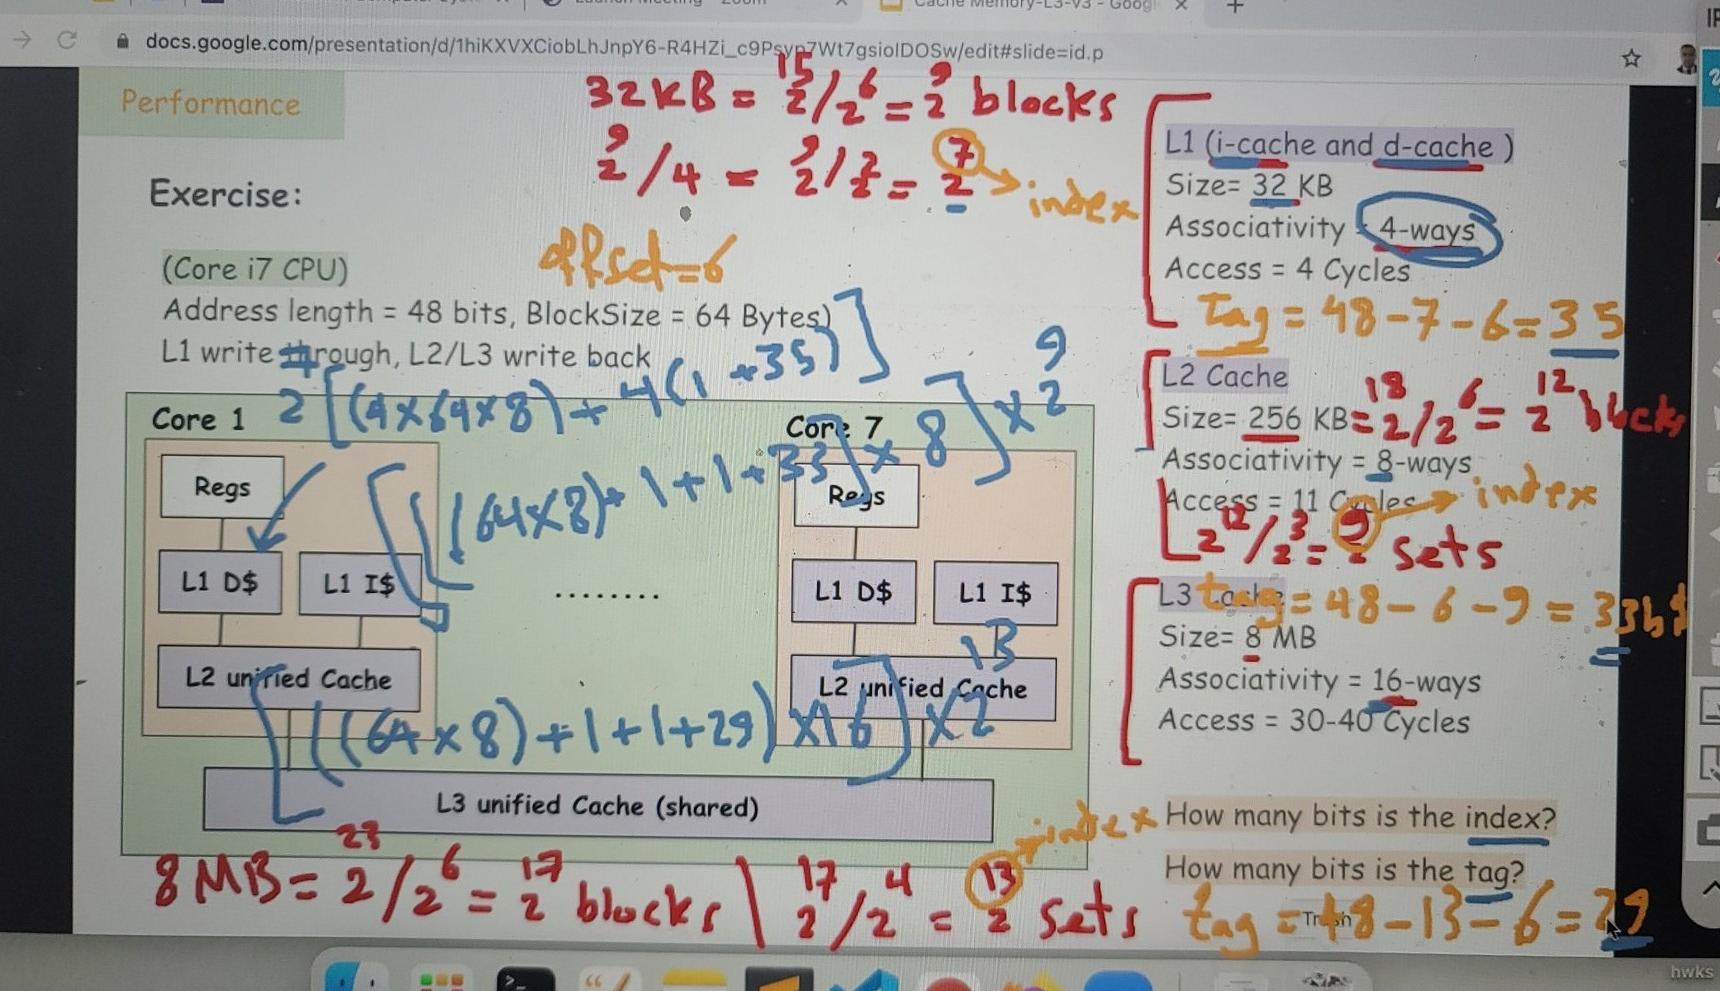 Cache Memory-L3-v3 - Googl
docs.google.com/presentation/d/1hiKXVXCiobLhJnpY6-R4HZi_c9Psyp7Wt7gsioIDOSw/edit#slide=id.p
Performance
32KB = 2^15/2^6 = 2^9 blocks
2^9/4 = 2^9/2^2 = 2^7 → index
Exercise:
offset=6
(Core i7 CPU)
Address length = 48 bits, BlockSize = 64 Bytes)
L1 write through, L2/L3 write back
2[(4×64×8)+4(1+35)]
Core 1
Core 7
[((64×8)+1+1+33)×8]×2^9
Regs
Regs
L1 D$
L1 I$
........
L1 D$
L1 I$
L2 unified Cache
L2 unified Cache
[((64×8)+1+1+29)×16]×2^13
L3 unified Cache (shared)
8MB = 2^23/2^6 = 2^17 blocks | 2^17/2^4 = 2^13 sets
index
L1 (i-cache and d-cache )
Size= 32 KB
Associativity 4-ways
Access = 4 Cycles
Tag = 48-7-6=35
L2 Cache
Size= 256 KB = 2^18/2^6 = 2^12 blocks
Associativity = 8-ways
Access = 11 Cycles → index
2^12/2^3 = 2^9 sets
L3 Cache
tag = 48-6-9 = 33b
Size= 8 MB
Associativity = 16-ways
Access = 30-40 Cycles
How many bits is the index?
How many bits is the tag?
tag = 48-13-6=29
Trash
hwks